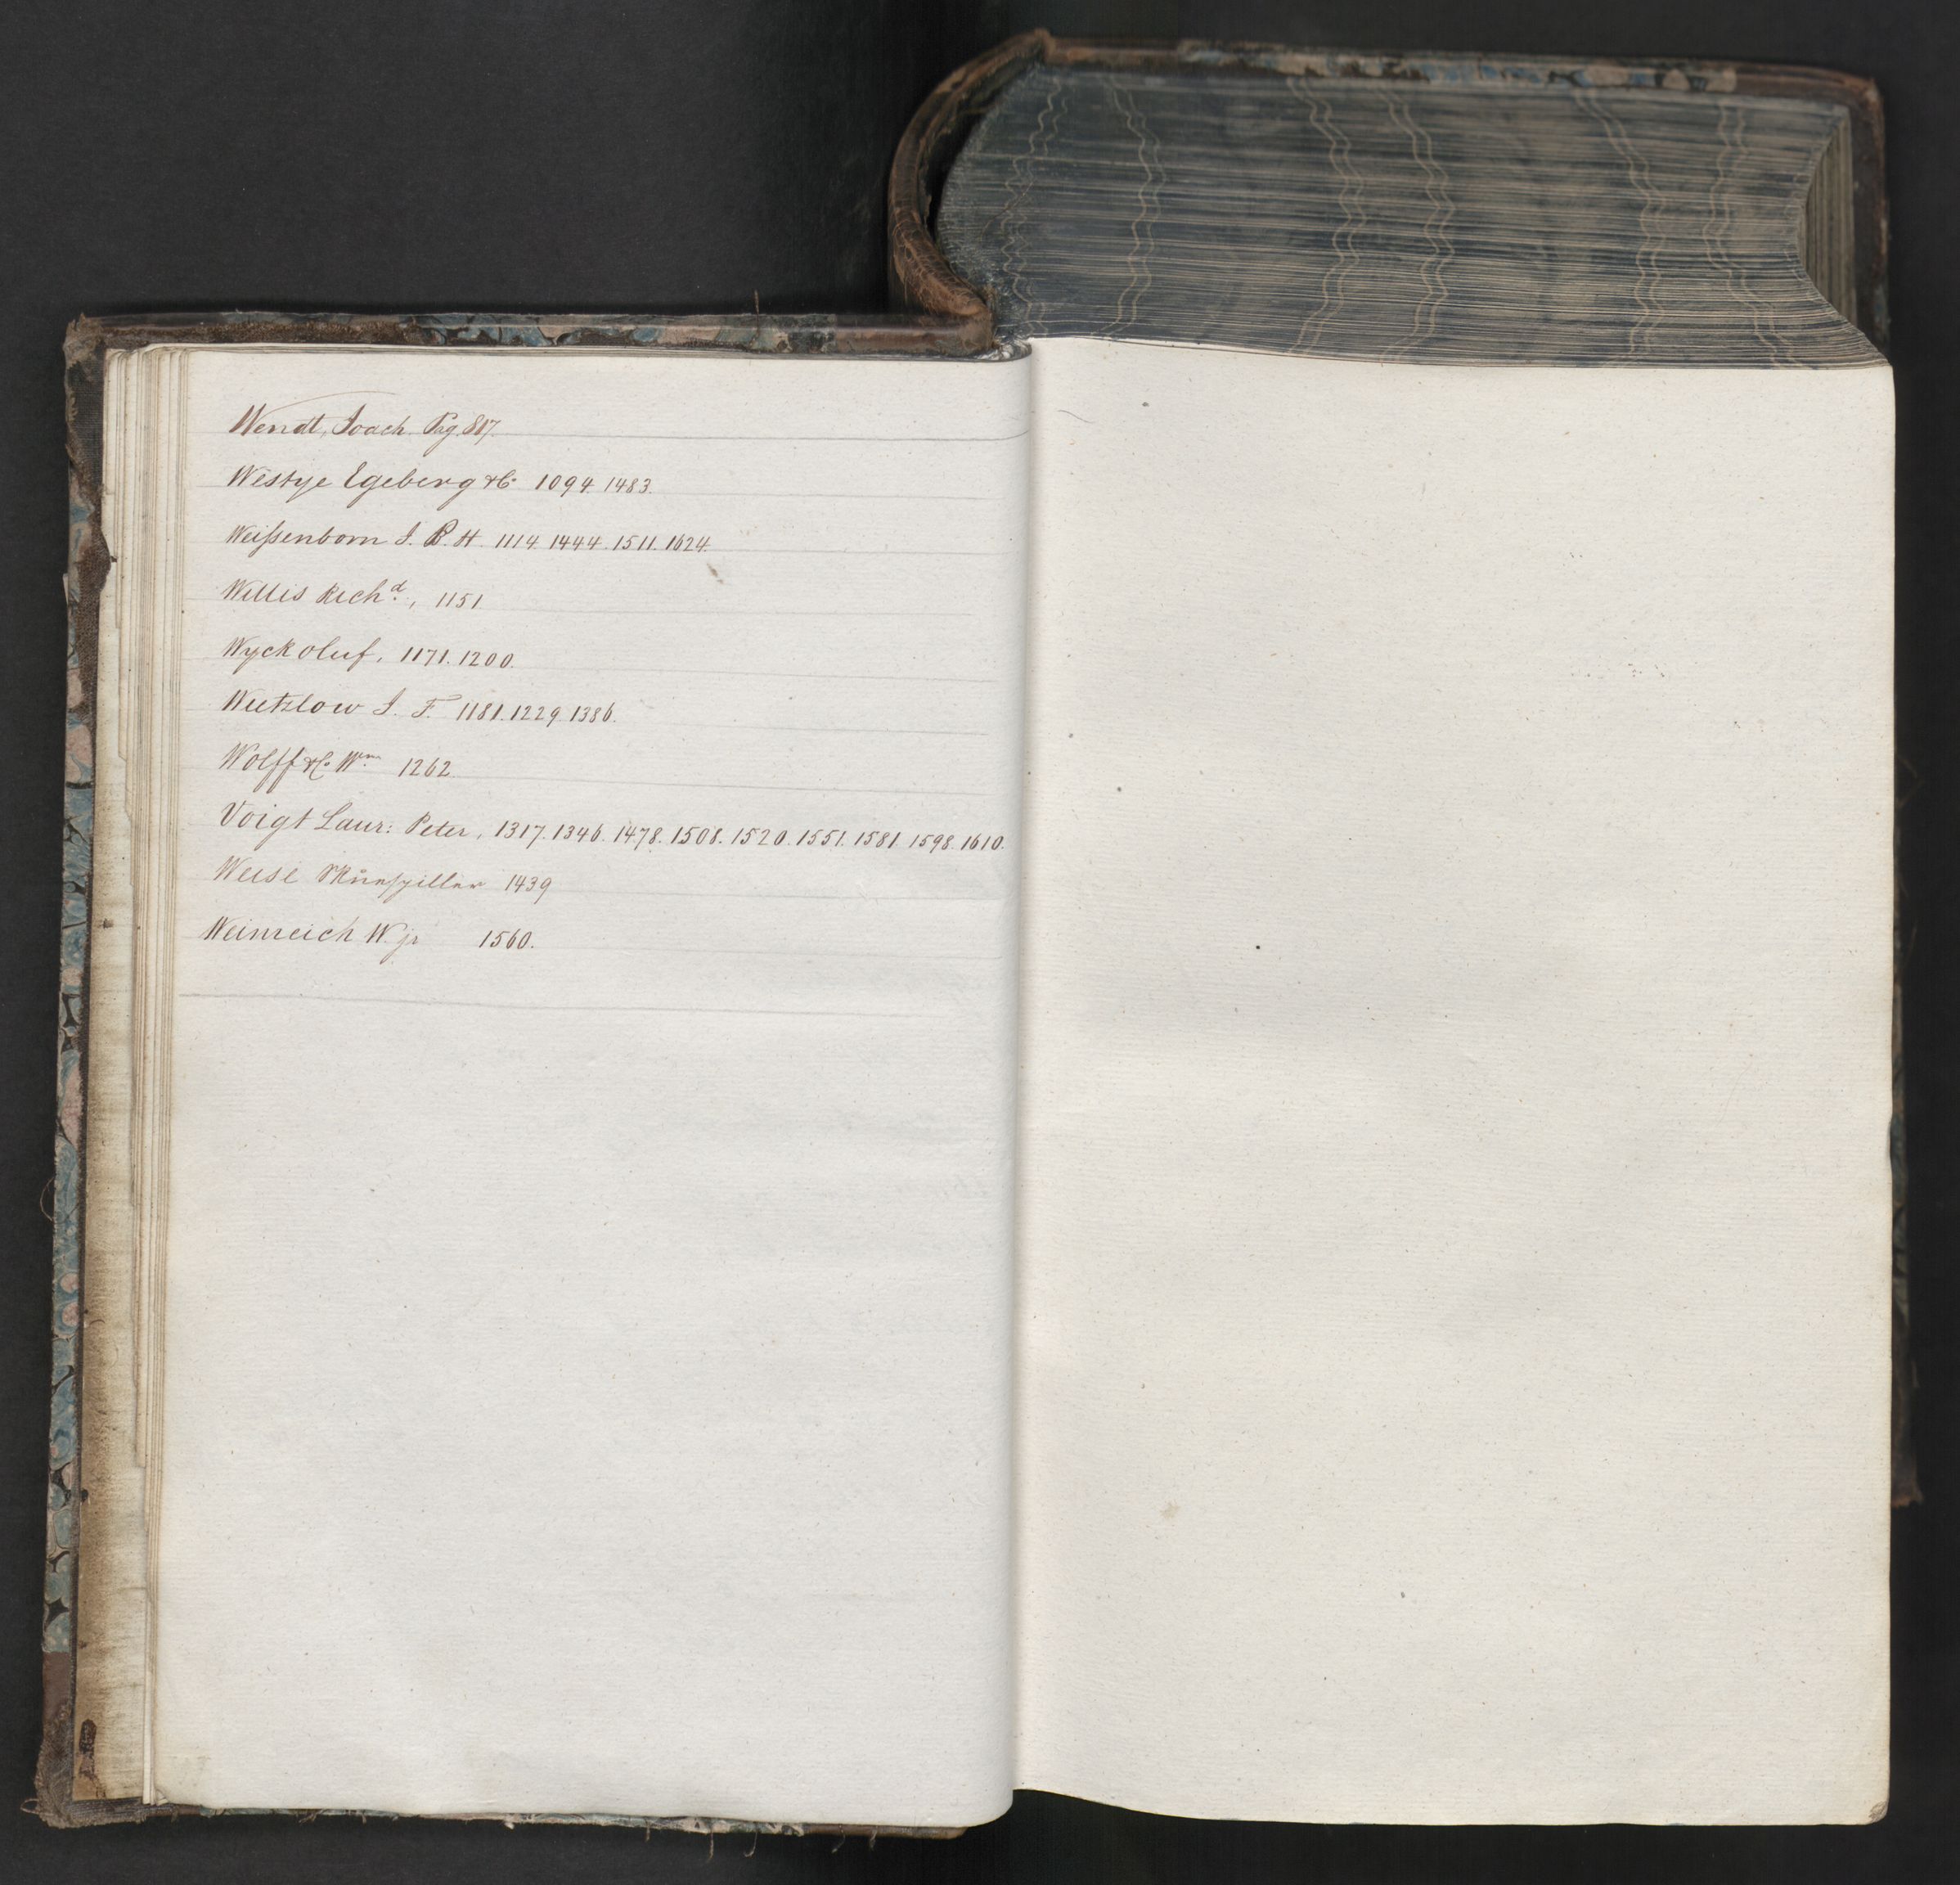 Wendt, Joach. Pag. 817.
Westye Egeberg & Co 1094. 1483.
Weißenborn J. B. H. 1114. 1444. 1511. 1624.
Willis Richd., 1151
Wyck Oluf, 1171. 1200.
J. F. 1181. 1229. 1386.
Wolff & Co. Wm 1262
Voigt Laur: Peter, 1317. 1346. 1478. 1508. 1520. 1551. 1581. 1598. 1610.
Weise Skuespiller 1439
Weinreich W. jr 1560.